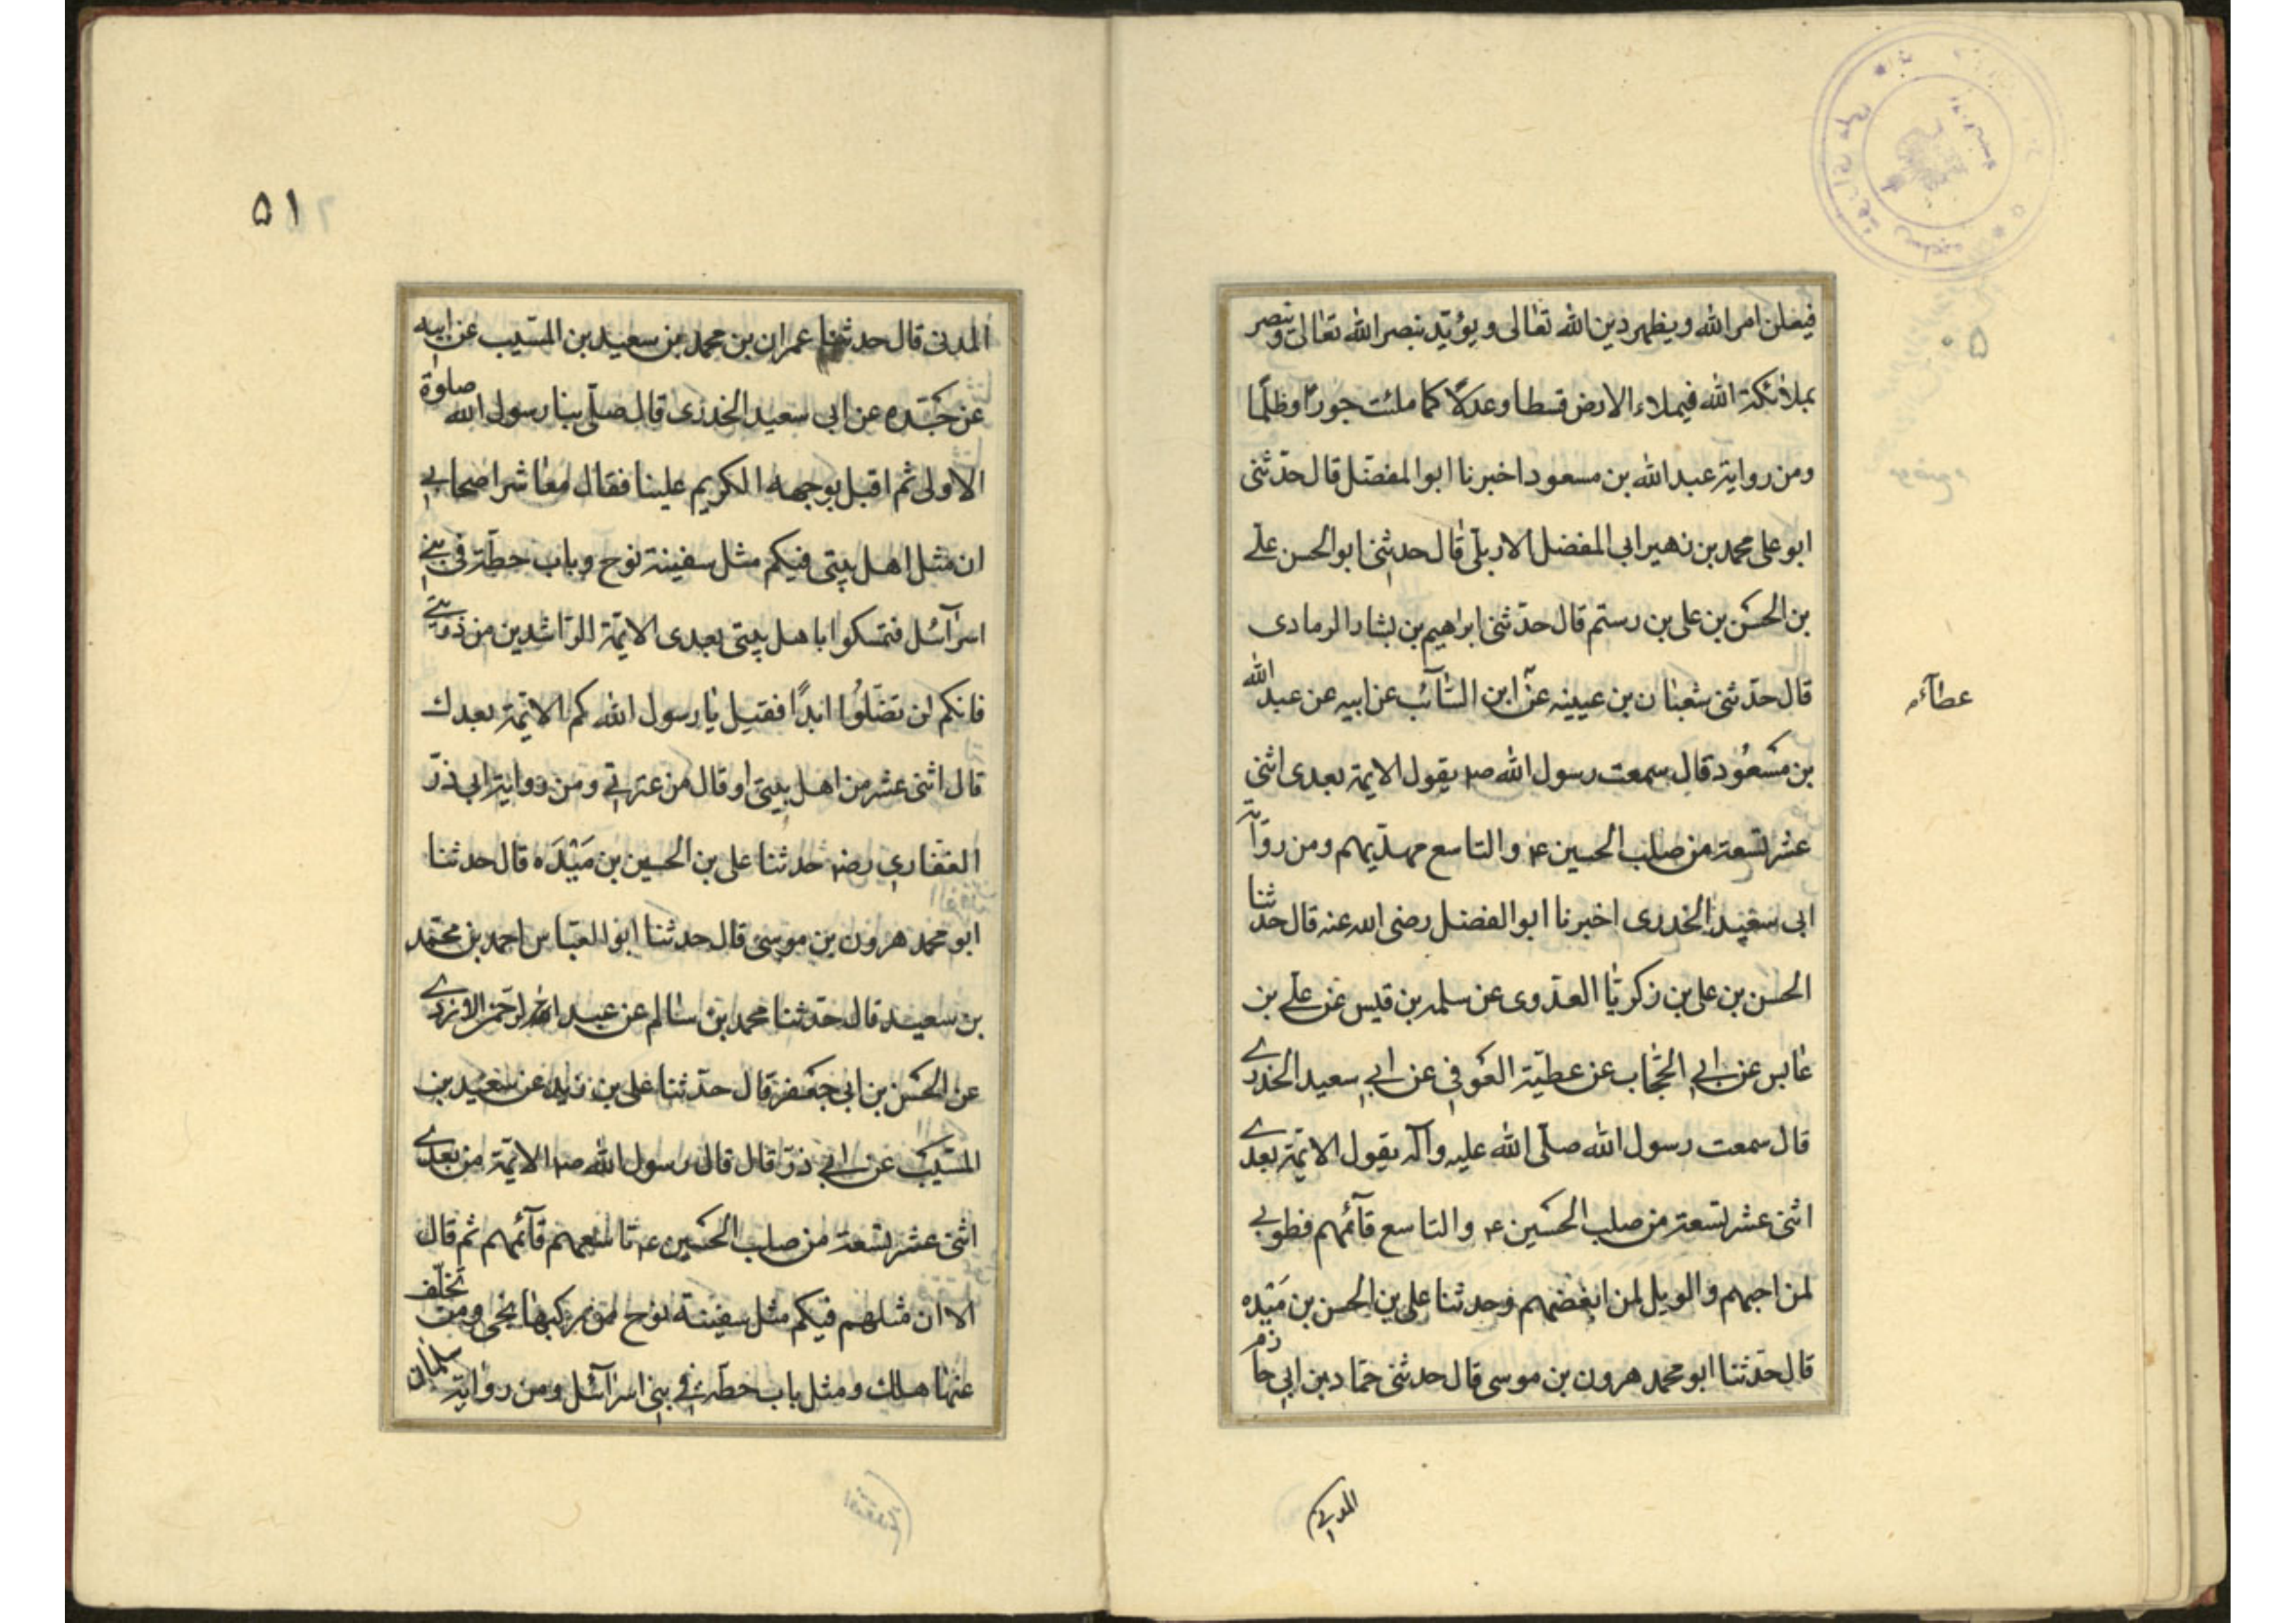 فيعلن امر الله ويظهر دين الله تعالى ويؤيّد بنصر الله تعالى وينصر
بملائكة الله فيملاء الارض قسطا وعدلًا كما ملئت جورًا وظلمًا
ومن رواية عبد الله بن مسعود اخبرنا ابو المفضّل قال حدّثنى
ابو على محمد بن زهير ابى المفضل الاربلّى قال حدثنى ابو الحسن علے
بن الحسن بن على بن رستم قال حدّثنى ابرهيم بن بشار الرمادى
قال حدّثنى سفيان بن عيينه عن ابن السّآئب عن ابيه عن عبد الله
عطآء
بن مسعُود قال سمعت رسول الله ص يقول الايمة بعدى اثنى
عشر تسعة من صلب الحسين ع والتاسع مهديهم ومن رواية
ابى سعيد الخدرى اخبرنا ابو الفضل رضى الله عنه قال حدثنا
الحسن بن على بن زكريّا العدوى عن سلمه بن قيس عن علے بن
عابس عن ابے الحجّاب عن عطيّة العوفى عن ابے سعيد الخدرے
قال سمعت رسول الله صلّى الله عليه وآله يقول الائمّة بعدے
اثنى عشر تسعة من صلب الحسين ع والتاسع قآئمهم فطوبے
لمن احبهم والويل لمن ابغضهم وحدثنا على بن الحسن بن مَنْده
قال حدّثنا ابو محمد هرون بن موسى قال حدثنى حمّاد بن ابى حازم
المدنے
۵۱
المدنى قال حدثنا عمران بن محمد بن سعيد بن المسيّب عن ابيه
عن جَدّه عن ابى سعيد الخدرى قال صلّى بنا رسول الله صلوٰة
الاولى ثم اقبل بوجهه الكريم علينا فقال معٰاشر اصحابے
ان مثل اهل بيتى فيكم مثل سفينة نوح وباب حطّة فى بنے
اسرآئل فتمسكوا باهل بيتى بعدى الايمّة الرّاشدين من ذريتے
فانكم لن تضّلوُا ابدًا فقيل يٰا رسول الله كم الائمّة بعدك
قال اثنى عشر من اهل بيتى او قال من عترتى ومن رواية ابى ذرّ
الغفارى رض حدثنا على بن الحسين بن مَنْدَه قال حدثنا
ابو محمد هرون بن موسى قال حدثنا ابو العبّاس احمد بن محمّد
بن سعيد قال حدّثنا محمد بن سٰالم عن عبد الرحمن الازدے
عن الحسن بن ابى جعفر قال حدّثنا على بن زيد عن سعيد بن
المسيّب عن ابے ذرّ قال قال رسول الله ص الائمّة من بعدے
اثنى عشر تسعة من صلب الحسين ع تاسعهم قآئمهم ثم قال
الا ان مثلهم فيكم مثل سفينة نوح من ركبها نجى ومن تخلّف
عنها هلك ومثل باب حطّة فى بنى اسرآئل ومن رواية سلمان